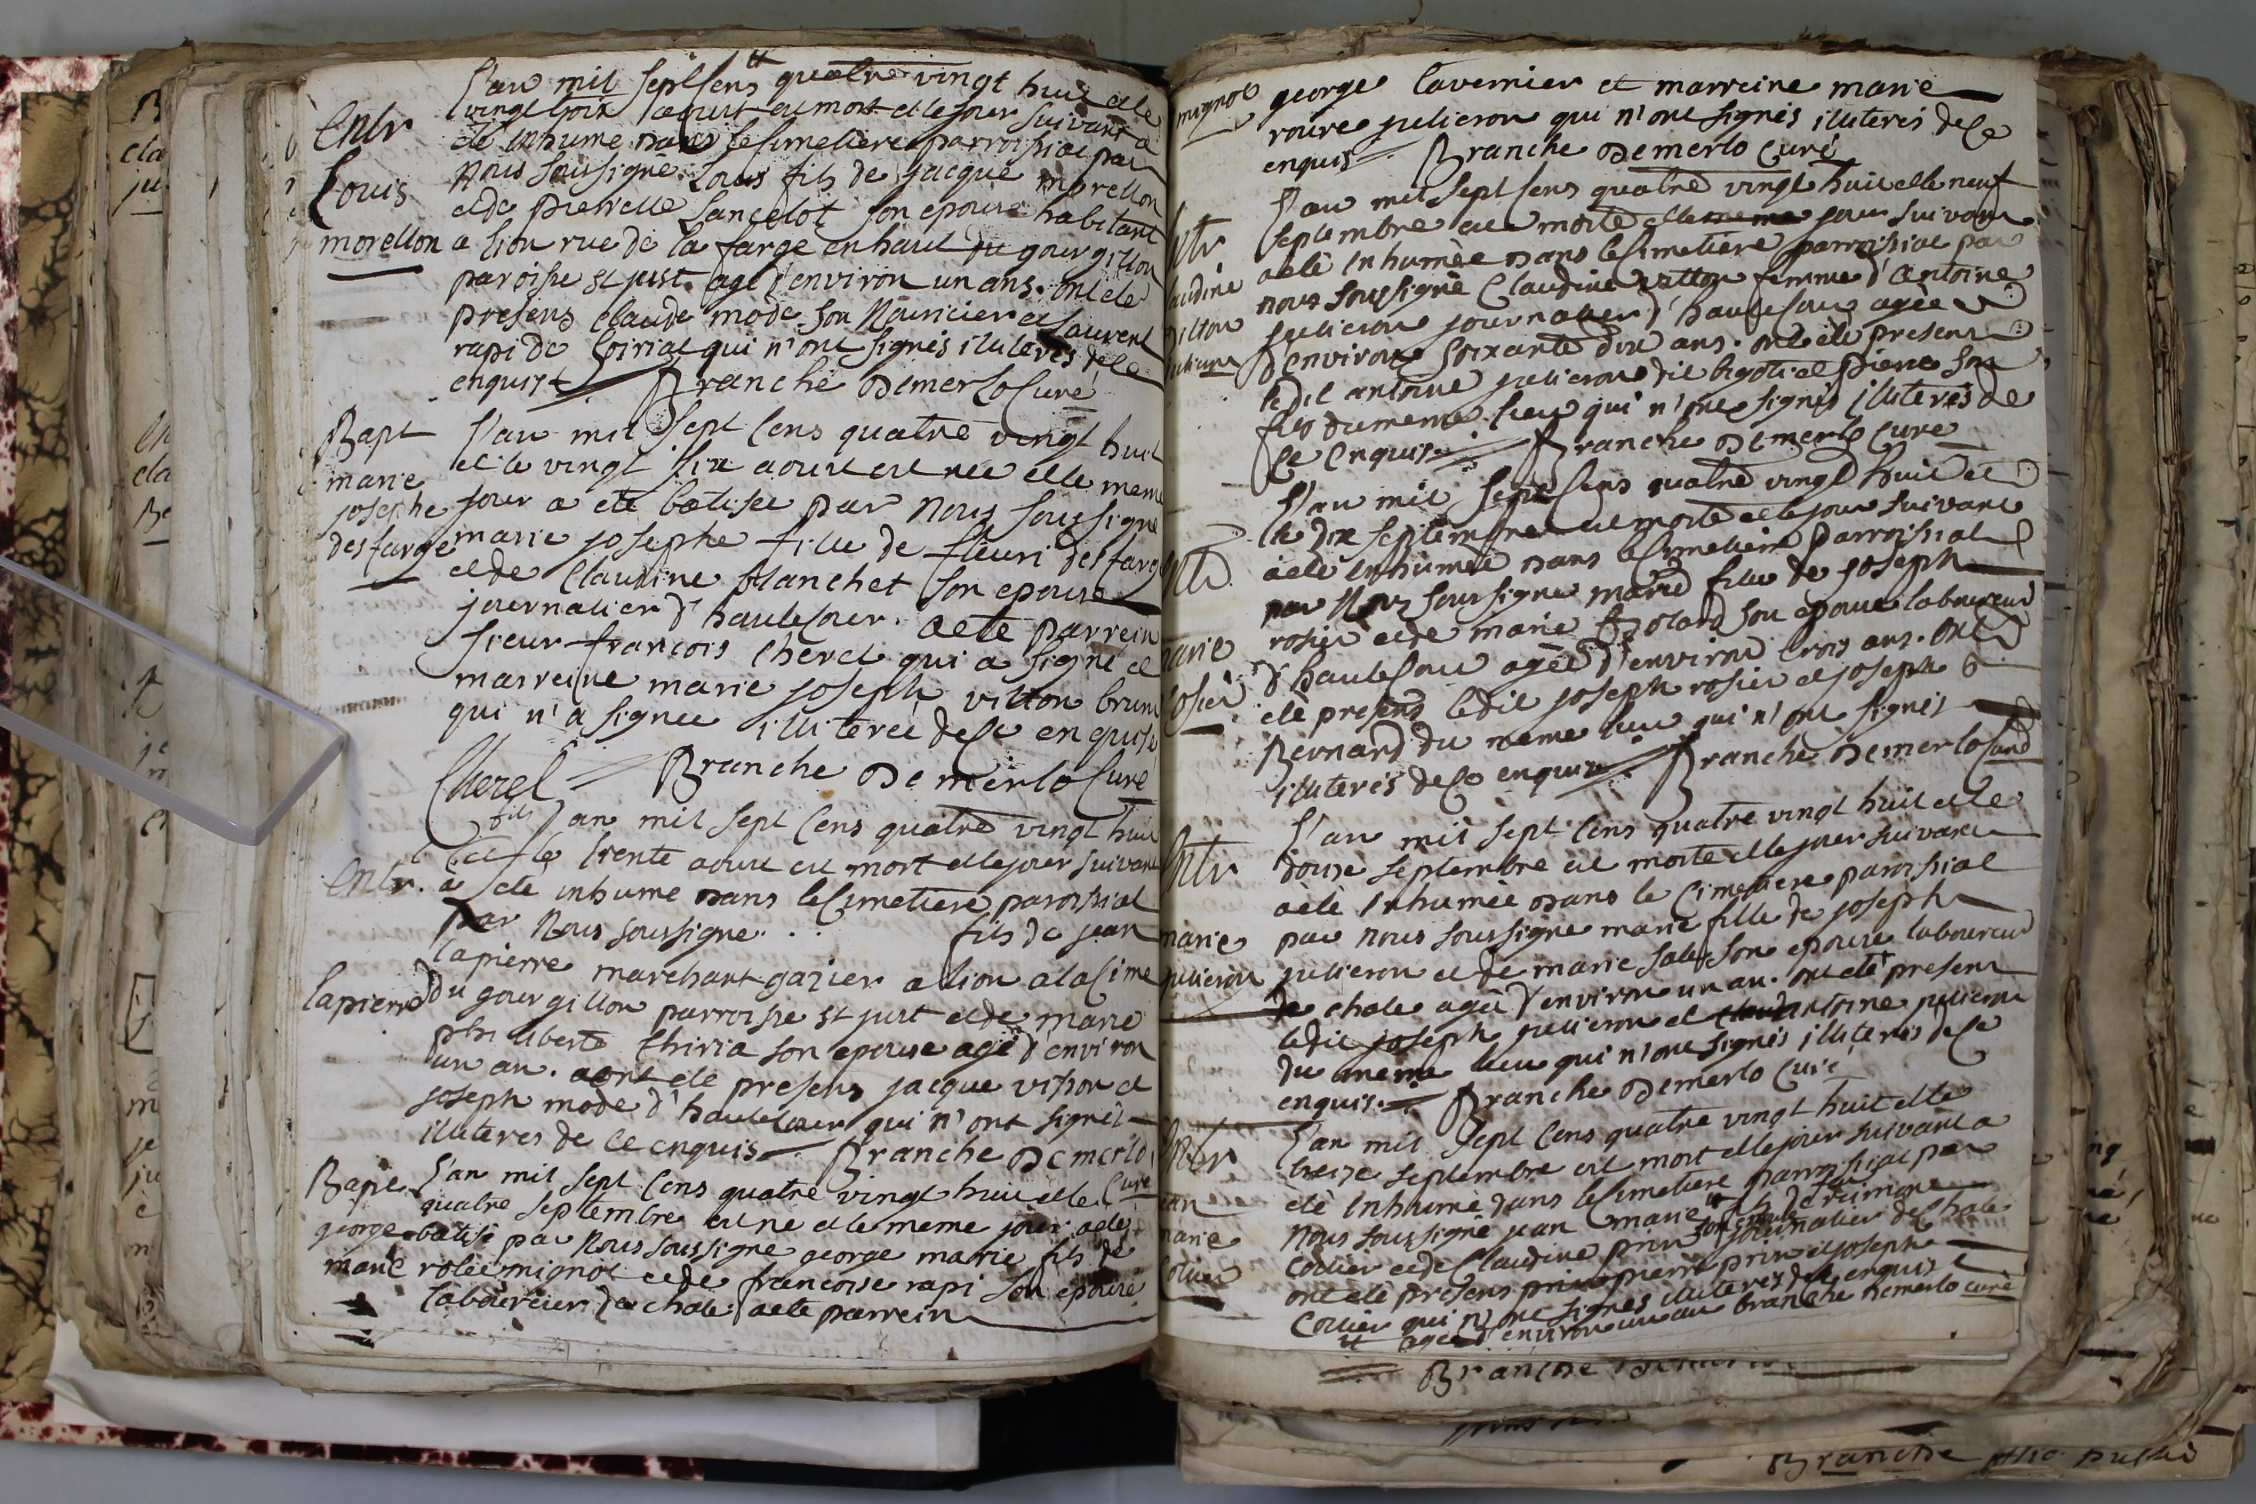 l'an mil sept sens quatre vingt huit et le
vingt trois aout est mort et le jour suivant a
Entr
ete inhumé dans le cimetiere parroissial par
nous soussigné Louis fils de jacque morellon
Louis
et de pierrette Lancelot son epouse habitant
morellon
a lion rue de la farge en haut du gourgillon
paroisse st just agé d'environ un ans. ont ete
presens Claude mode son nouricier et Laurent
rapi de qui n'ont signés illiterés de ce
enquis Branche Demerlo Curé
Bapt
l'an mil sept cens quatre vingt huit
et le vingt six aout est née et le meme
marie
josephe
jour a eté batisée par nous soussigné
desfarge
marie josephe fille de fleuri desfarge
et de Claudine blanchet son epouse
journalier d'hautecour. a ete parrein
sieur françois Cherel qui a signé et
marreine marie joseph vitton brune
qui n'a signee illiterée de ce enquise
Cherel Branche Demerlo Curé
fils
l'an mil sept cens quatre vingt huit
et le trente aout est mort et le jour suivant
Entr.
a eté inhumé dans le cimetiere paroissial
par nous soussigné . . fils de jean
lapierre marchant gazier a lion a la cime
lapierre
du gourgillon parroisse st just et de marie
phi liberte Chiria son epouse agé d'environ
un an. ont ete presens jacque vitton et
joseph mode d'hautecour qui n'ont signés
illiteres de ce enquis Branche Demerlo
Bapt
l'an mil sept cens quatre vingt huit et le Curé
quatre septembre est né et le meme jour a eté
george
batisé par nous soussigné george marie fils de
marie
mignot et de francoise rapi son epouse
laboureur de chale. a ete parrein
mignot
george tavernier et marreine marie
roure julieron qui n'ont signés illiterés de ce
enquis Branche Demerlo Curé
l'an mil sept sens quatre vingt huit et le neuf
septembre est morte et le meme jour suivant
Entr
a eté inhumée dans le cimetiere parroissial par
claudine
nous soussigné Claudine vitton femme d'antoine
vitton
julieron journalier d'hautecour agée
julieron
d'environ soixante dix ans. ont eté presens
ledit antoine julieron dit bigot et pierre son
fils du meme lieu qui n'ont signés illiterés de
ce enquis Branche Demerlo Curé
l'an mil sept sens quatre vingt huit et
le dix septembre est morte et le jour suivant
Entr
a eté inhumée dans le cimetiere parroissial
par nous soussigné marie fille de joseph
marie
rosier et de marie son epouse laboureur
rosier
d'hautecour agée d'environ trois ans. ont
eté presens ledit joseph rosier et joseph
Bernard du meme lieu qui n'ont signés
illiterés de ce enquis Branche Demerlo Curé
l'an mil sept cens quatre vingt huit et le
Entr
douze septembre est morte et le jour suivant
a eté inhumée dans le cimetiere paroissial
marie
par nous soussigné marie fille de joseph
julieron
julieron et de marie sale son epouse laboureur
de chale agée d'environ un an. ont eté presens
ledit joseph julieron et antoine julieron
du meme lieu qui n'ont signés illiterés de ce
enquis. Branche Demerlo Curé
l'an mil sept cens quatre vingt huit et le
Entr
treize septembre est mort et le jour suivant a
eté inhumé dans le cimetiere parroissial par
jean
nous soussigné jean marie fils de
marie
Cottier et de Claudine prin son epouse journalier de chale
Cottier
ont eté presens pierre prin et joseph
Cottier qui n'ont signés illiterés de ce enquis
agé d'environ un an branche demerlo curé
Branche
Branche